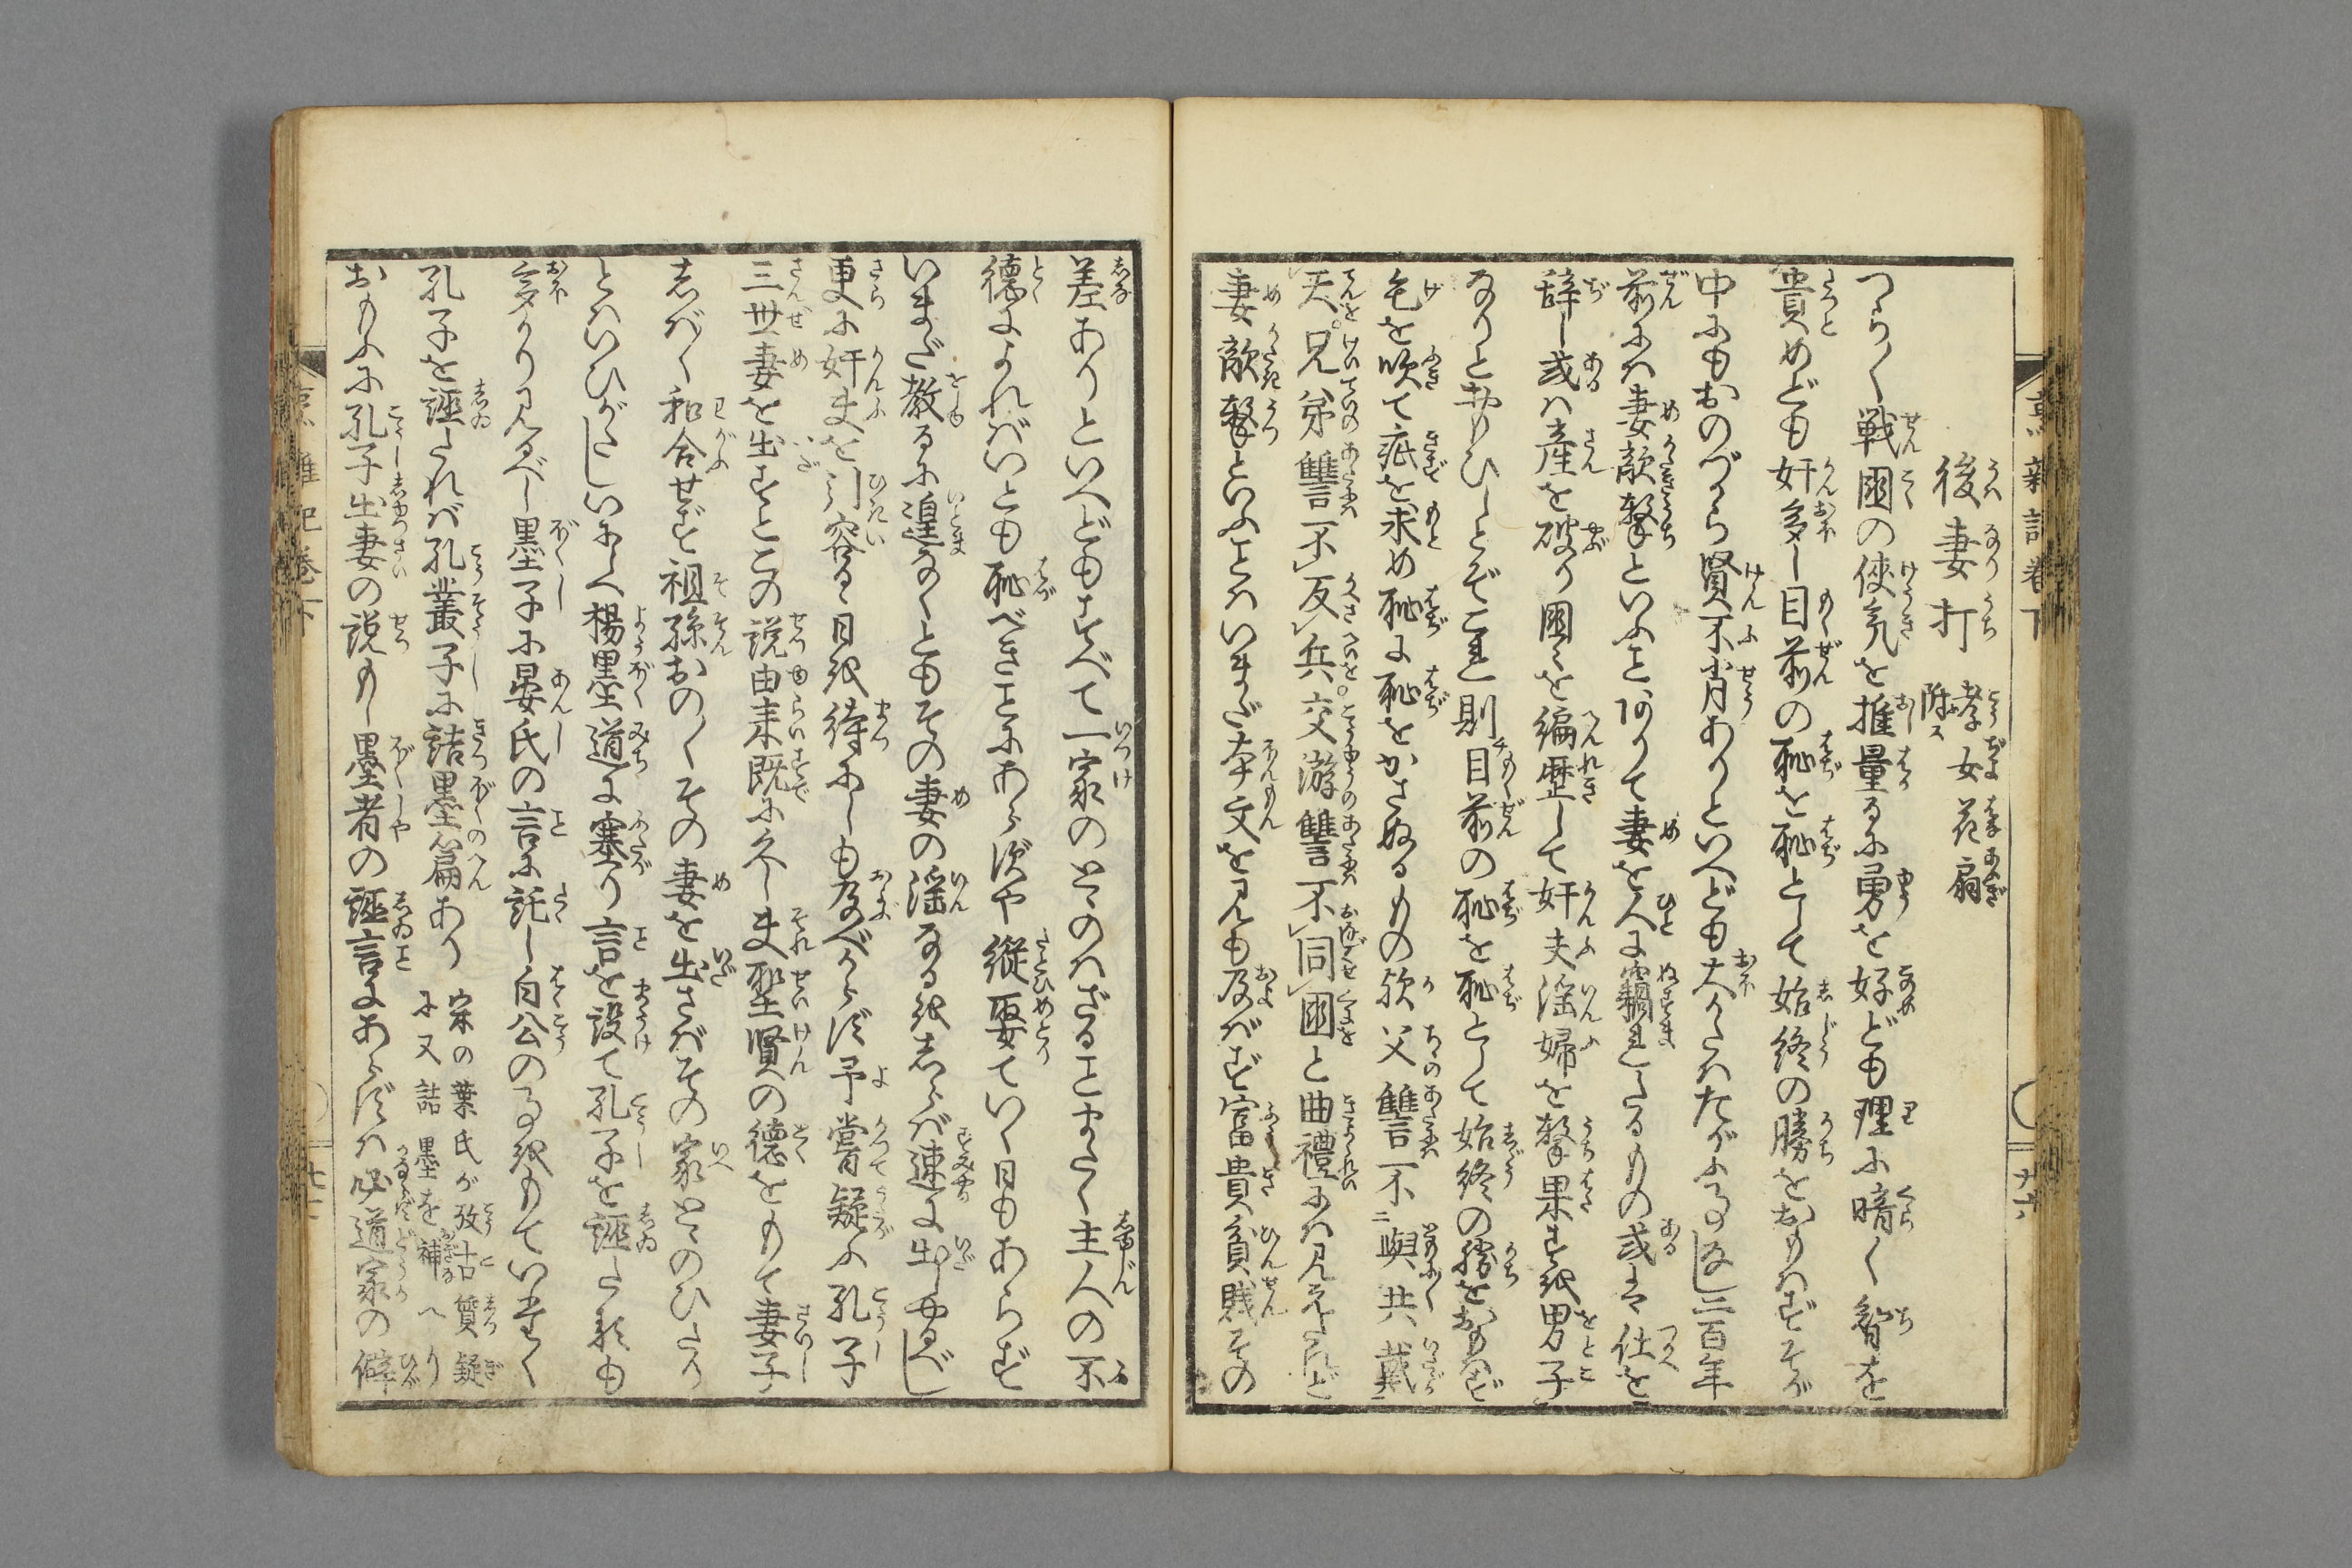 後妻打 孝女花扇附ス
つら〳〵戦國の侠氣を推量るに勇を好ども理に暗く智を
貴めども奸多し目前の恥を恥として始終の勝をおもはずそが
中にもおのづから賢不肖ありといへども大かたはたがふ事なし二百年
前には妻敵撃といふことありて妻を人に竊れたるもの或は仕を
辞し或は産を破り國々を編歴して奸夫淫婦を撃果すを男子
なりとおもひしとぞこは則目前の恥を恥として始終の勝をおもはず
毛を吹て疵を求め恥に恥をかさぬるもの歟父讐不與共戴
天。兄弟讐不反兵。交游讐不同國と曲禮には見えたれど
妻敵撃といふことはいまだ本文を見も及ばず富貴貧賎その
差ありといへどもすべて一家のとゝのはざることまたく主人の不
徳によればいとも恥べきことにあらずや縦娶ていく日もあらず
いまだ教るに遑なくともその妻の淫なるをしらば速に出しやるべし
更に奸夫を引容るゝ日を待にしも及べからず予嘗疑ふ孔子
三世妻を出すとこの説由来既に久し夫聖賢の徳をもて妻子
しば〳〵和合せず祖孫おの〳〵その妻を出さばその家とゝのひたり
とはいひがたしいにしへ楊墨道に塞り言を設て孔子を誣た類も
多かり見るべし墨子に晏氏の言に託し白公の事をもていたく
孔子を誣たれば孔叢子に詰墨篇あり 宋の葉氏が攷古質疑に又詰墨を補へり
おもふに孔子出妻の説もし墨者の誣言にあらずは必道家の僻